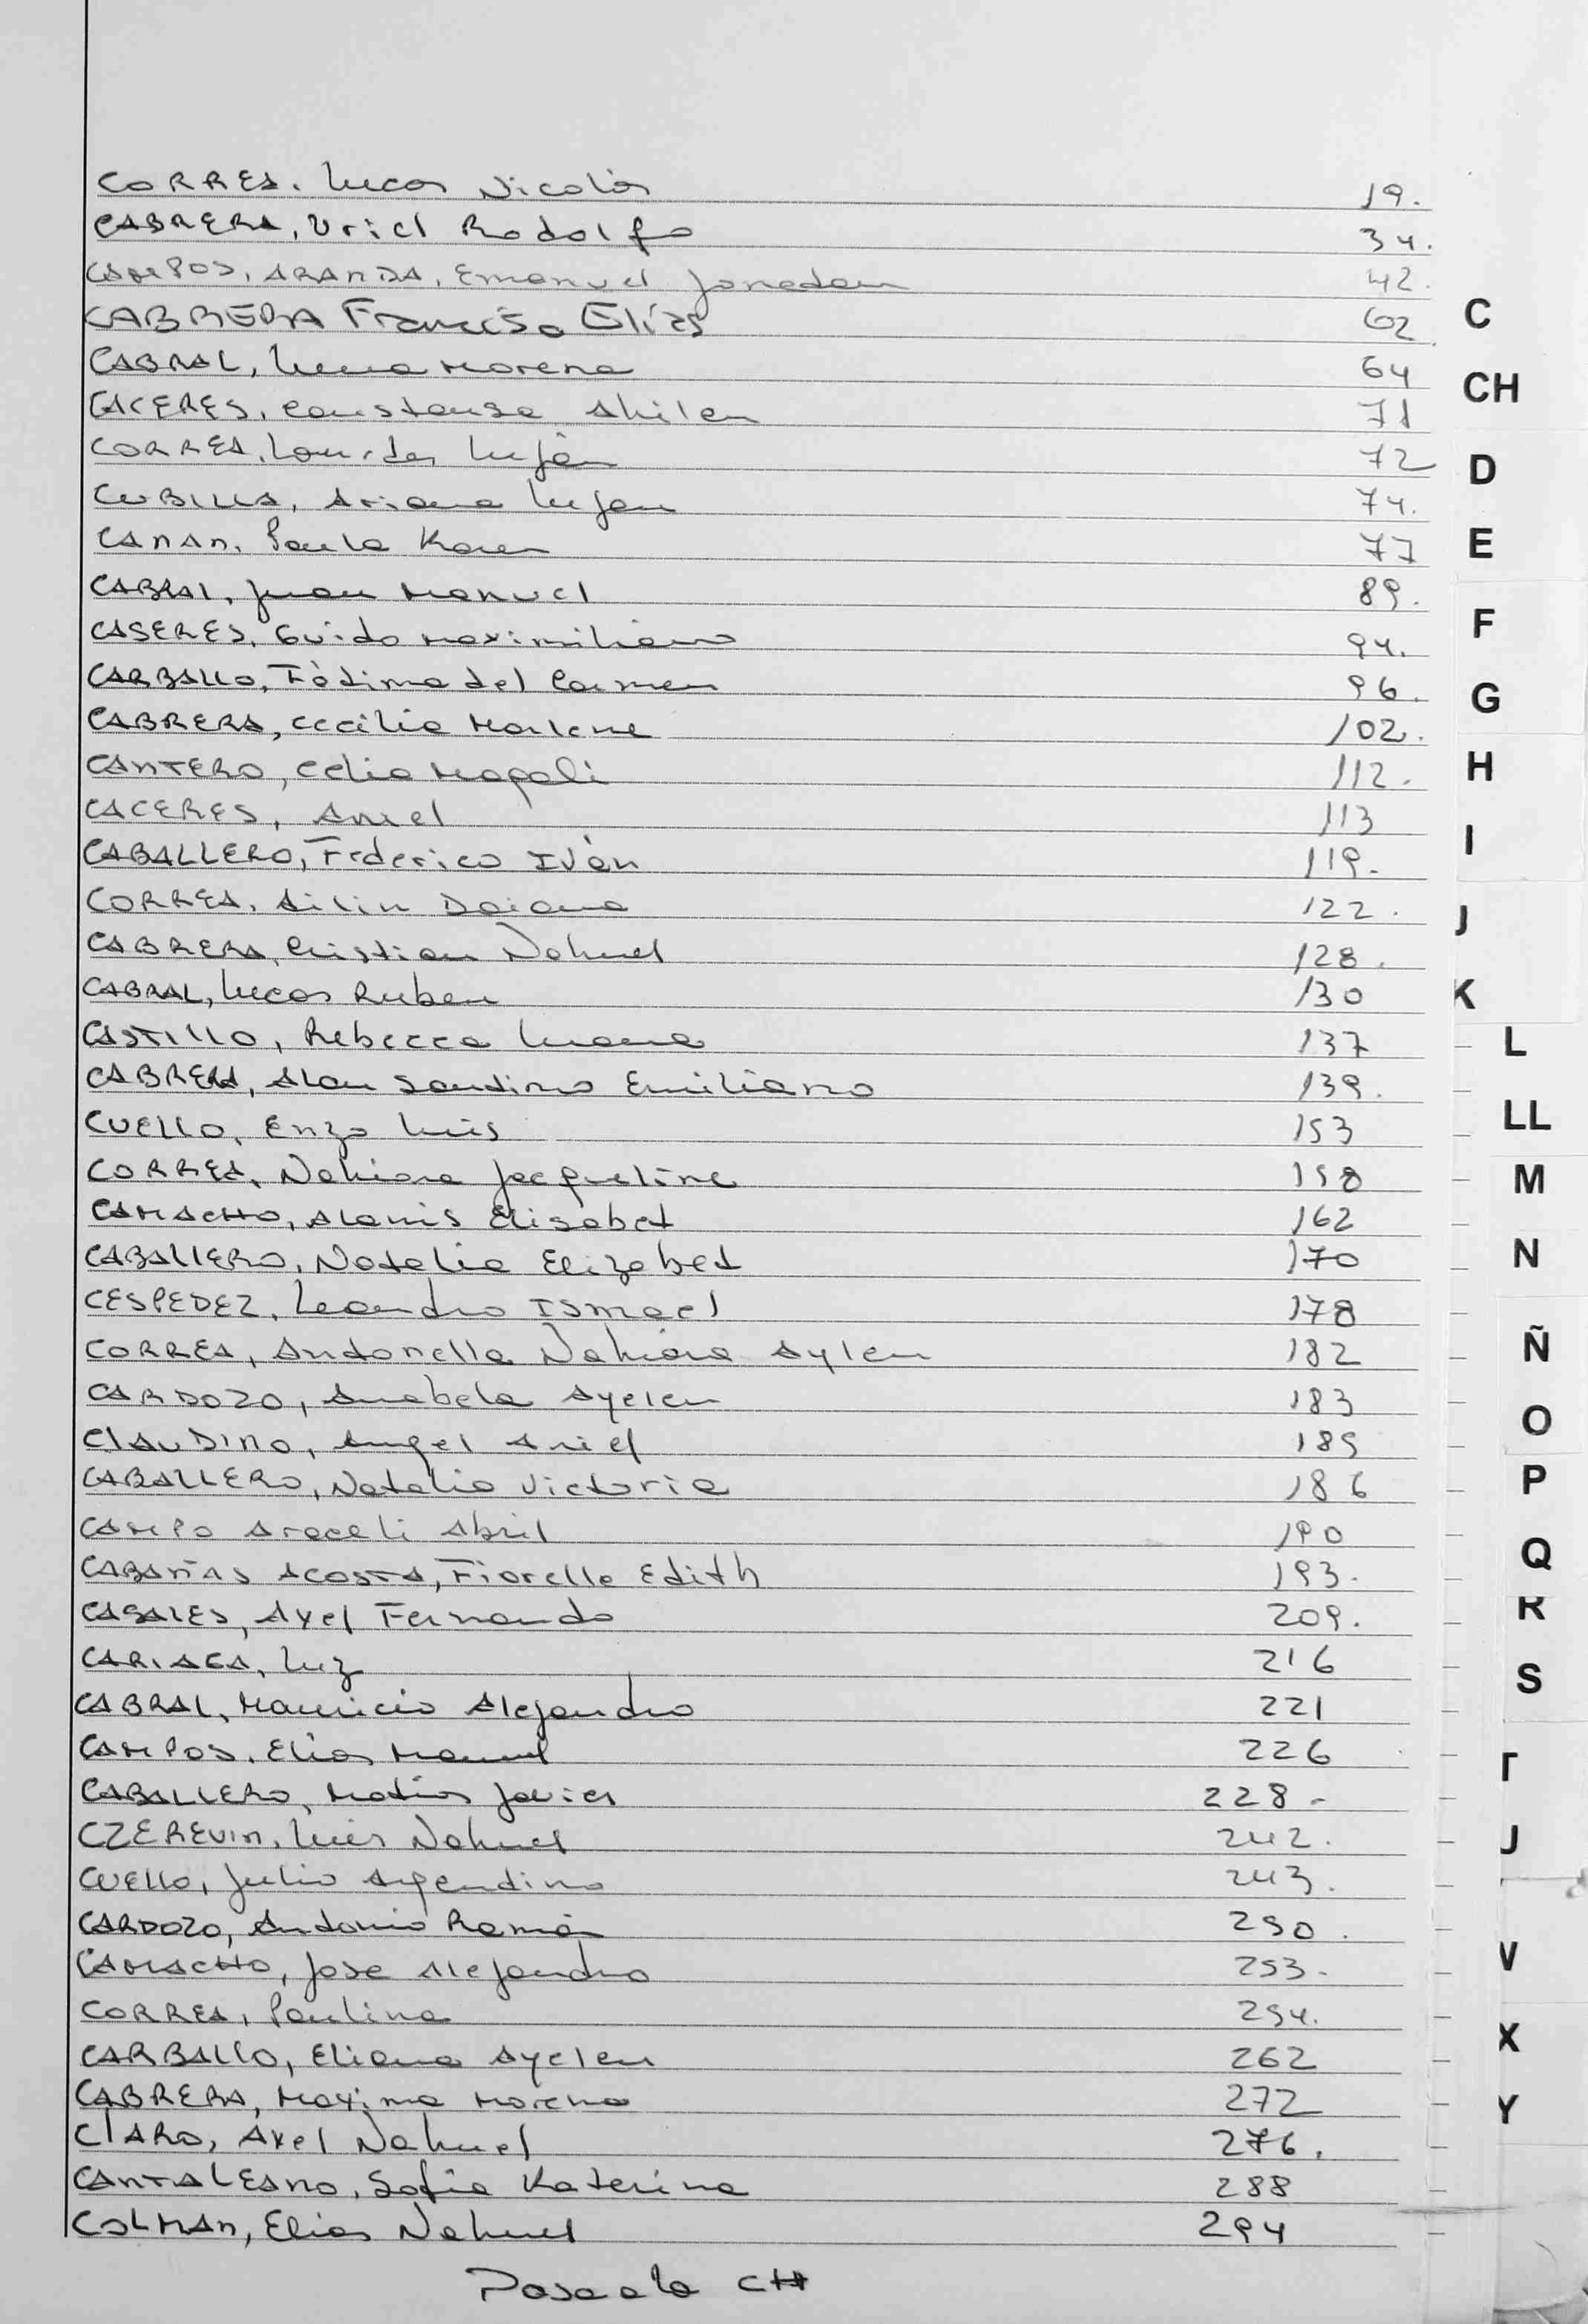 CORREA. Lucas Nicolás 19.
CABRERA, Uriel Rodolfo 34.
CAMPOS, ARANDA, Emanuel Jonadan 42.
CABRERA Francisco Elías 62
CABRAL, Luna Morena 64
CACERES, Constansa Ahilen 71
CORREA, Lourdes Luján 72
CUBILLA, Ariana Lujan 74.
CANAN, Paula Karen 77
CABRAL, Juan Manuel 89.
CASERES, Guido Maximiliano 94.
CARBALLO, Fátima del Carmen 96.
CABRERA, Cecilia Marlene 102.
CANTERO, Celia Magali 112.
CACERES, Ariel 113
CABALLERO, Federico Iván 119.
CORREA, Ailin Daiana 122.
CABRERA, Cristian Nahuel 128.
CABRAL, Lucas Ruben 130
CASTILLO, Rebecca Luana 137
CABRERA, Alan Santino Emiliano 139.
CUELLO, Enzo Luis 153
CORREA, Nahiara Jacqueline 158
CAMACHO, Alanis Elisabet 162
CABALLERO, Natalia Elizabet 170
CESPEDEZ, Leandro Ismael 178
CORREA, Antonella Nahiara Aylen 182
CARDOZO, Anabela Ayelen 183
CLAUDINO, Angel Ariel 185
CABALLERO, Natalia Victoria 186
CAMPO Araceli Abril 190
CABAÑAS ACOSTA, Fiorella Edith 193.
CASALES, Axel Fernando 209.
CARIAGA, Luz 216
CABRAL, Mauricio Alejandro 221
CAMPOS, Elias Manuel 226
CABALLERO, Matías Javier 228-
CZEREVIN, Luis Nahuel 242.
CUELLO, Julio Argentino 243.
CARDOZO, Antonio Ramón 250.
CAMACHO, Jose Alejandro 253-
CORREA, Paulina 254.
CARBALLO, Eliana Ayelen 262
CABRERA, Maxima Morena 272
CLARO, Axel Nahuel 276.
CANTALEANO, Sofia Katerina 288
COLMAN, Elias Nahuel 294
Pasa a la CH
C
CH
D
E
F
G
H
I
J
K
L
LL
M
N
Ñ
O
P
Q
R
S
T
V
X
Y